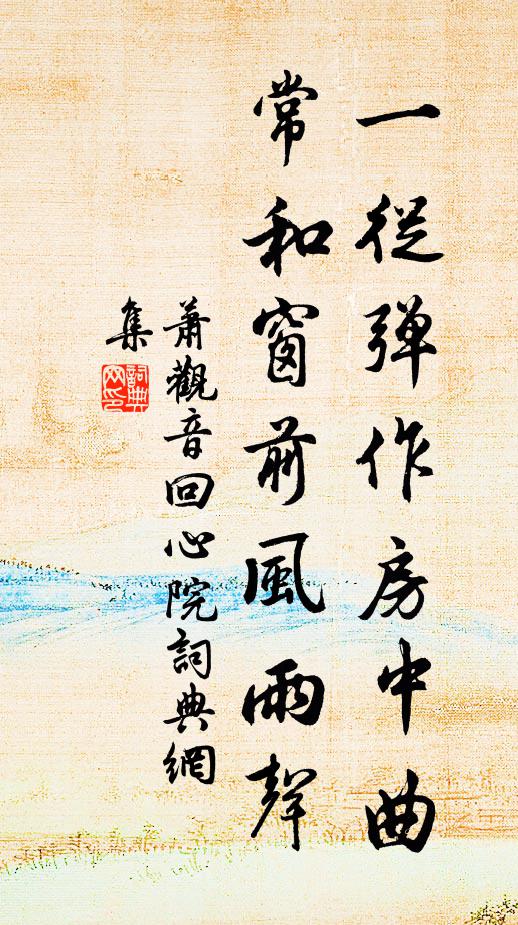 一從彈作房中曲
常和窗前風雨聲
蕭觀音回心院詞典網
集
詞典
网印